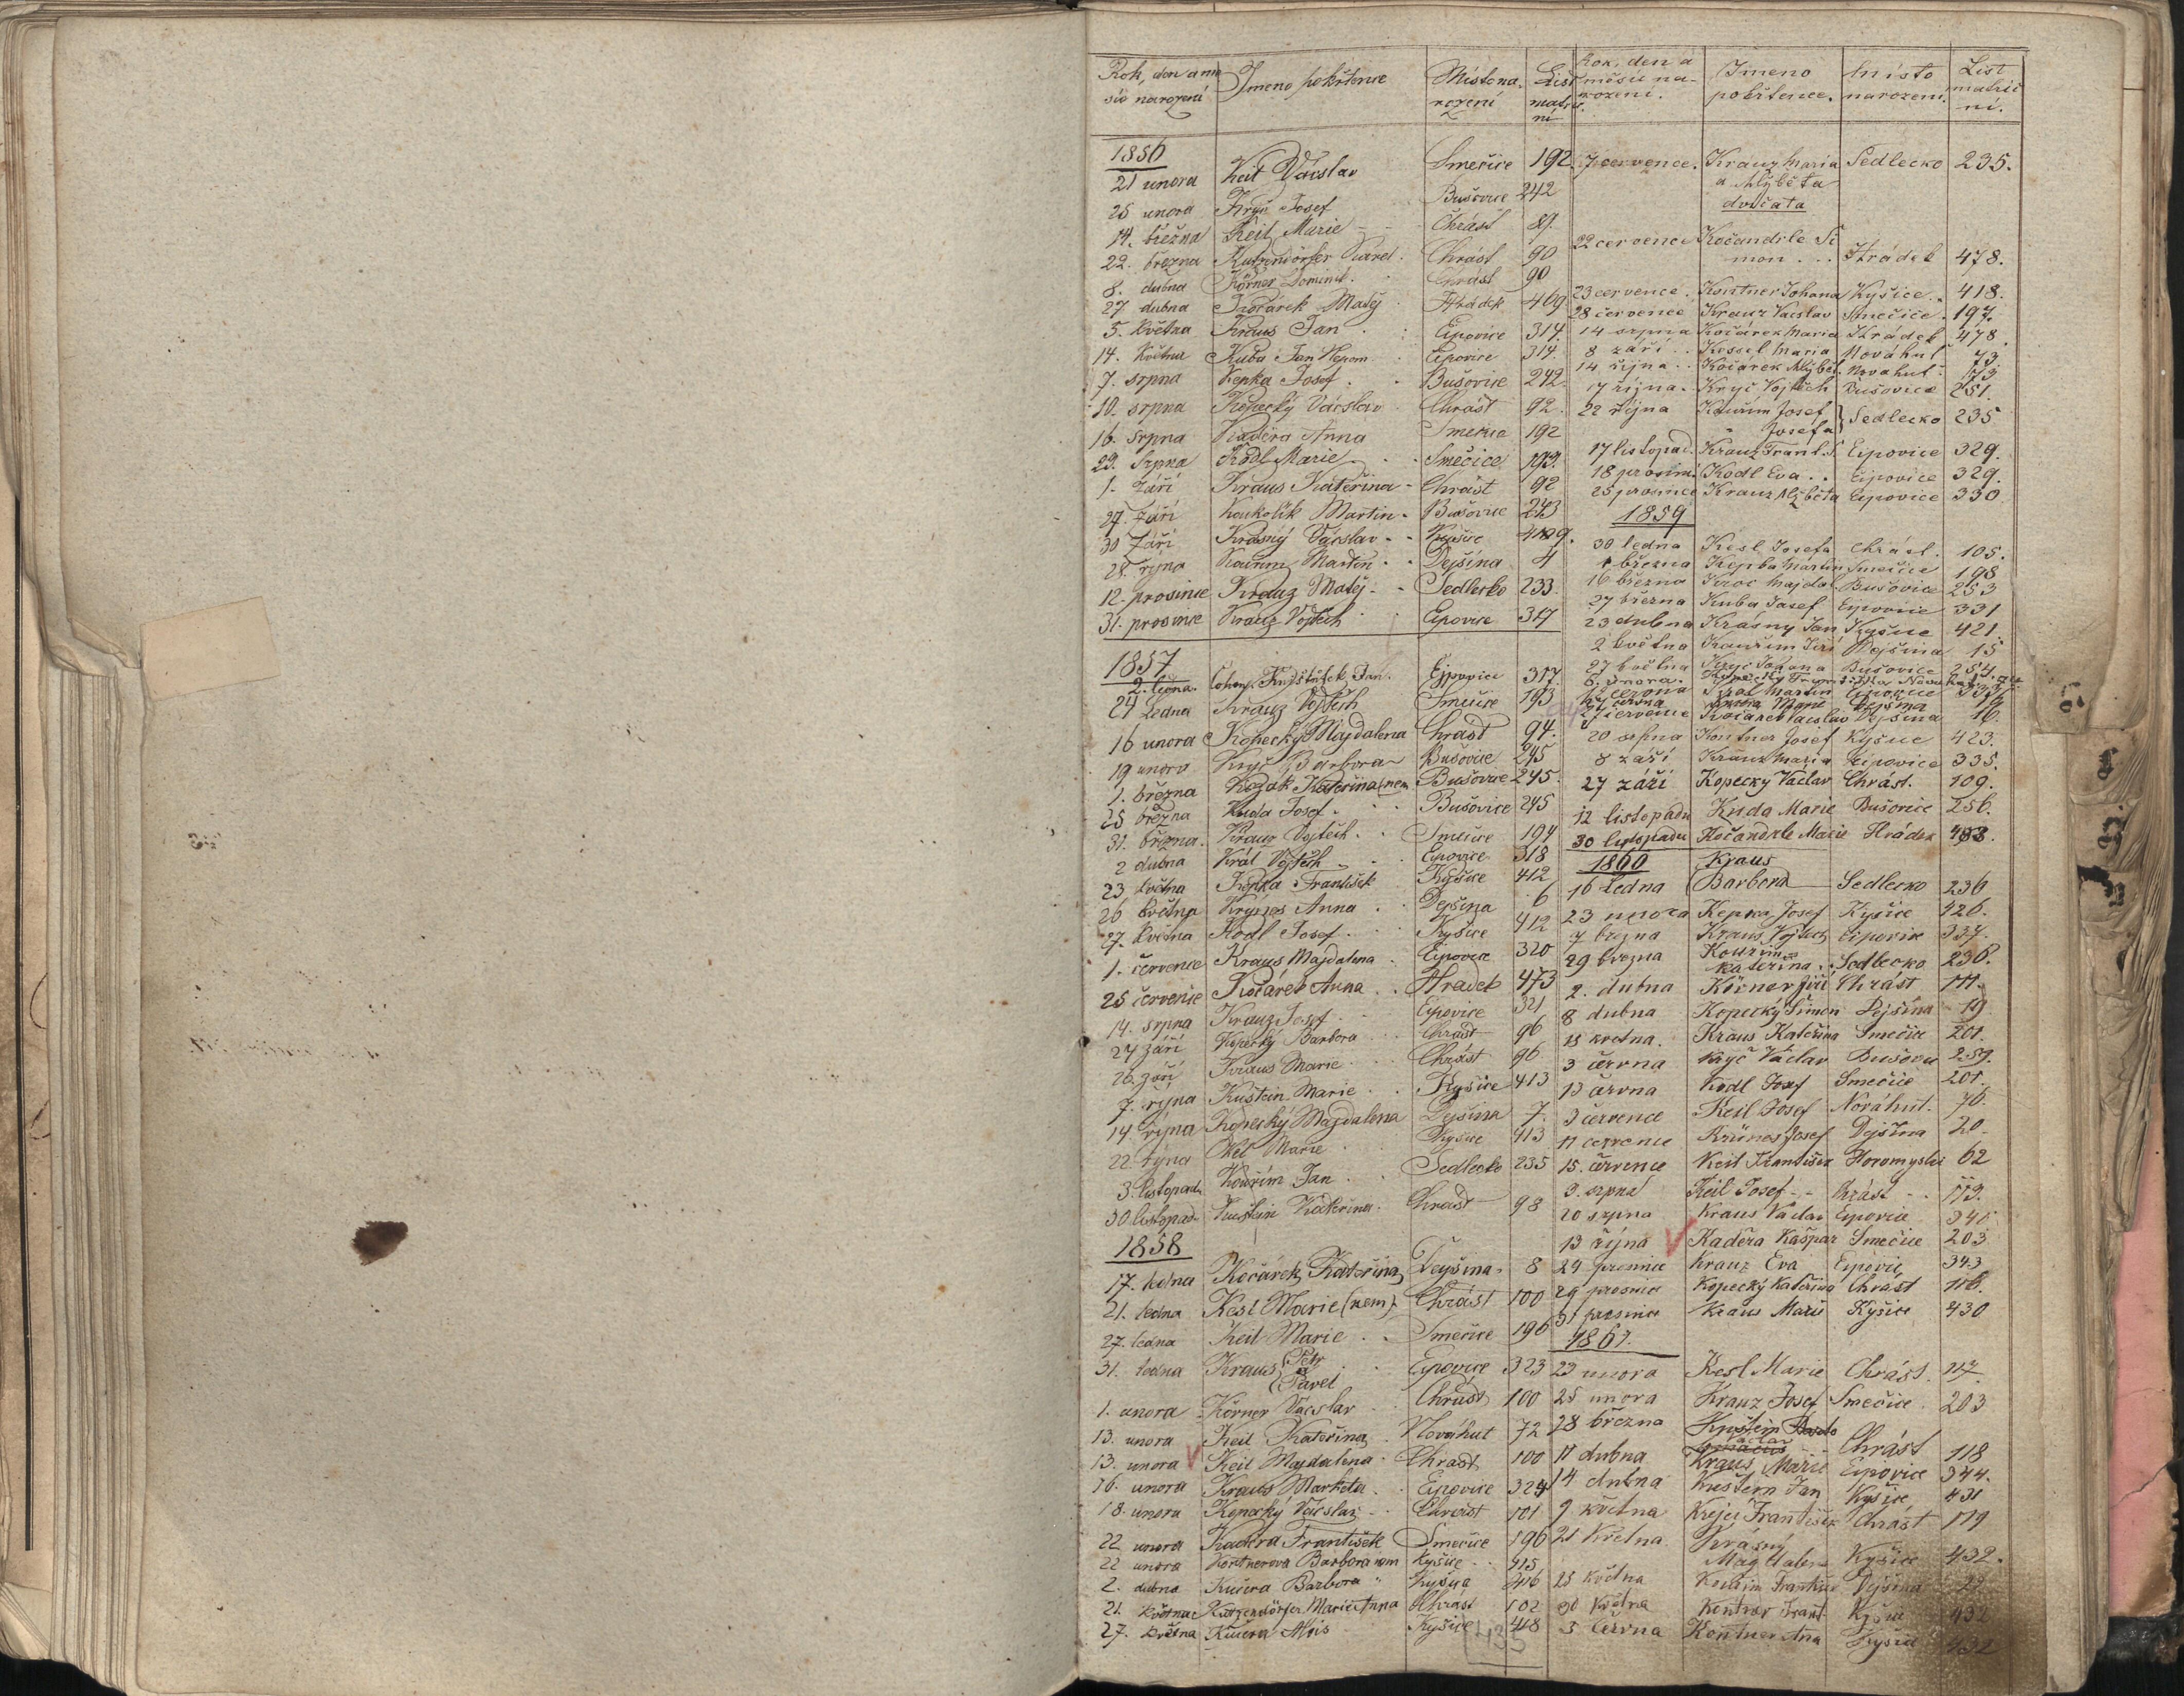 Rok, den a mě
síc narození
Jmeno pokřtence
Místo na-
rození
List
matri
ní
1856
21 unora Keil Václav Smečice 192
25 unora Kryč Josef Bušovice 242
14. března Keil Marie Chrást 89.
22. března Karel Chrást 90
8. dubna Körner Dominik Chrást 90
27 dubna Matěj Hrádek 469
5. Května Kraus Jan Ejpovice 314.
14. Května Kuba Jan Nepom. Ejpovice 314
7. srpna Kepka Josef Bušovice 242
10. srpna Kopecký Václav Chrást 92
16. srpna Kaděra Anna Smečice 192
29. Srpna Kodl Marie Smečice 193.
1. Září Kraus Kateřina Chrást 92
27. Září Koukolík Martin Bušovice 243
30 Září Krásný Václav Kyšice
28. října Kouřim Martin Dejšina 4
12. prosince Krauz Matěj Sedlecko 233.
31. prosince Krauz Vojtěch Ejpovice 317
1857
2. ledna Jan Ejpovice 317.
24 Ledna Krauz Vojtěch Smečice 193
16 unora Kopecký Majdalena Chrást 94.
19 unora Kryč Barbora Bušovice 245
1. března Kozák Kateřina (nem Bušovice 245.
25 března Kuda Josef Bušovice 245
31. března Kraus Vojtěch Smečice 194
2 dubna Král Vojtěch Ejpovice 318
23 května Kepka František Kyšice 412
26 května Anna Dejšina 6
27. května Kodl Josef Kyšice 412
1. července Kraus Majdalena Ejpovice 320
25 července Kočárek Anna Hrádek 473
14. srpna Krauz Josef Ejpovice 321
24 září Kopecký Barbora Chrást 96
26. září Kraus Marie Chrást 96
7. října Kustein Marie Kyšice 413
14. října Kopecký Magdalena Dejšina 7.
22. října Marie Kyšice 413
3. listopadu Kouřim Jan Sedlecko 235
30 listopad. Kustein Kateřina Chrást 98
1858
17. ledna Kočárek Kateřina Dejšina 8
21. ledna Kesl Marie (nem) Chrást 100
27. ledna Keil Marie Smečice 196
31. ledna Kraus Petr
a
Pavel Ejpovice 323
1. unora Körner Václav Chrást 100
13. unora Keil Kateřina Nováhut 72
13. unora Keil Majdalena Chrást 100
16. unora Kraus Marketa Ejpovice 324
18. unora Kopecký Václav Chrást 101
22 unora Kaděra František Smečice 196
22 unora Kontnerová Barbora nem Kyšice 415
2. dubna Kučera Barbora Kyšice 416
21. května Marie Anna Chrást 102
27. května Kučera Alois Kyšice 418
435
Rok, den a
měsíc na-
rození.
Jmeno
pokřtence.
místo
narození.
List
matrič
ní.
7 července. Krauz Maria Sedlecko 235.
a Alžběta
dvojčata
22 července Kočandrle Ši
mon Hrádek 478.
23 července. Kontner Johana Kyšice 418.
28 července Krauz Václav Smečice 197.
14 srpna Kočárek Maria Hrádek 478.
8 září Kessel Maria Nováhuť 73.
14 října Kočárek Alžběta Nováhuť 73
17 října Kryč Vojtěch Bušovice 251.
22 října Kouřim Josef
Josefa Sedlecko 235
17 listopad. Krauz Frant. Ejpovice 329.
18 prosinc. Kodl Eva Ejpovice 329.
25 prosince Krauz Alžběta Ejpovice 330
1859
30 ledna Kesl Josefa Chrást. 105.
března Kepka Martin Smečice 198
16 března Kroc Majdal. Bušovice 253
27 března Kuba Josef Ejpovice 331
23 dubna Krásný Jan Kyšice 421.
2 května Kouřim Jiří Dejšina 15
27 května Kryč Johana Bušovice 254.
6. února. Kopecký
Král Martin Ejpovice
července Kočárek Václav Dejšina 16.
20 srpna Kontner Josef Kyšice 423.
8 září Krauz Maria Ejpovice 335.
27 září Kopecký Václav Chrást. 109.
12 listopadu Kuda Marie Bušovice 256.
30 listopadu Kočandrle Marie Hrádek 483.
1860
16 ledna Kraus
Barbora Sedlecko 236
23 unora Kepka Josef Kyšice 426.
7 března Kraus Vojtěch Ejpovice 337.
29 března Kouřim
Kateřina Sedlecko 236.
2. dubna Körner Jiří Chrást 111.
8 dubna Kopecký Šimon Dejšina 19
15 května. Kraus Kateřina Smečice 201.
3 června Kryč Václav Bušovice 259.
13 června Kodl Josef Smečice 201.
3 července Keil Josef Nováhut. 76.
11 července Josef Dejšina 20
15. července Keil František Horomyslic 62
9. srpna Keil Josef Chrást 113.
20 srpna Kraus Václav Ejpovice 340
13 října Kaděra Kašpar Smečice 203
24 prosince Krauz Eva Ejpovic 343
29 prosince Kopecký Kateřina Chrást 116.
31 prosince Kraus Marie Kyšice 430
1861.
23 unora Kesl Marie Chrást. 117.
25 unora Krauz Josef Smečice. 203
28 března Kustein Chrást 118
11 dubna Kraus Marie Ejpovice 344.
14 dubna Kustein Jan Kyšice 431
9 května Krejčí František Chrást 119
21 Května Krásný
Magdalena Kyšice 432.
25 května Kouřim František Dejšina
30 května Kontner Frant. Kyšice 432
3 června Kontner Ana Kyšice 432